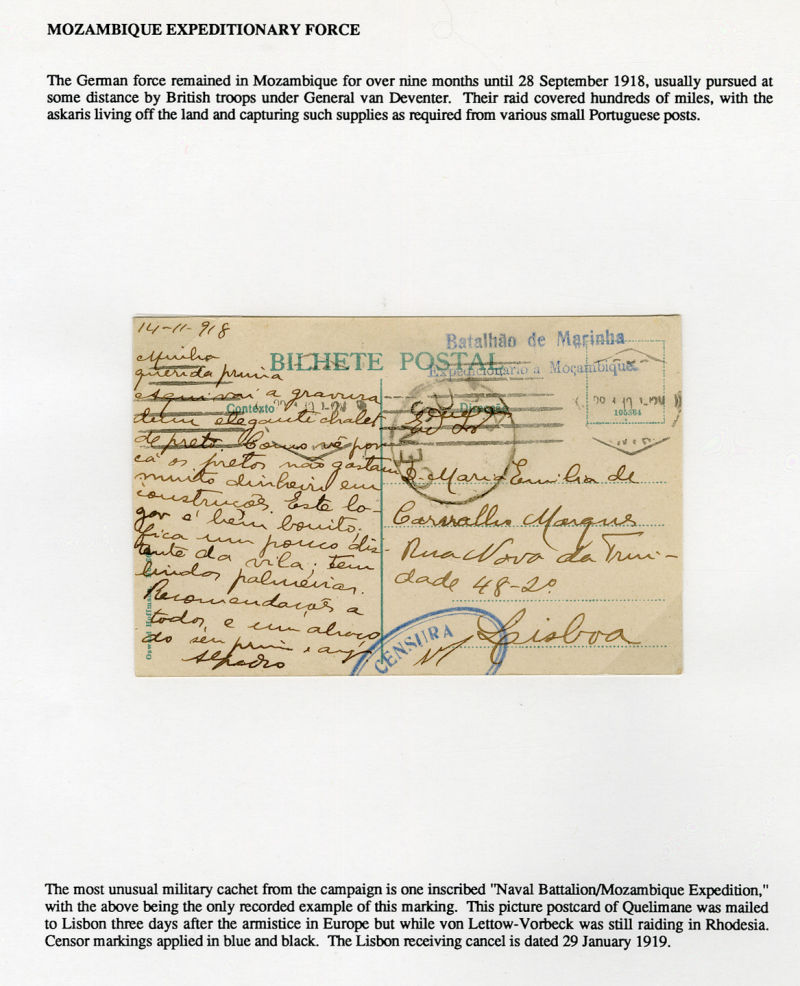 MOZAMBIQUE EXPEDITIONARY FORCE
The German force remained in Mozambique for over nine months until 28 September 1918, usually pursued at
some distance by British troops under General van Deventer. Their raid covered hundreds of miles, with the
askaris living off the land and capturing such supplies as required from various small Portuguese posts.
14-11-918
Minha
querida prima
Aqui vai a gravura
dum elegante chalet
de preto Como vê por
cá os pretos não gastam
muito dinheiro em
construções. Este lo-
gar é bem bonito;
fica um pouco dis-
tante da vila; tem
lindas palmeiras.
Recomendações a
todos, e um abraço
do seu primo
BILHETE POSTAL
Contexto
Direcção
Batalhão de Marinha
Expedicionario a Moçambique
105364
D. Maria Emilia de
Carvalho Marques
Rua Nova da Trin-
dade 48-2º
Lisboa
CENSURA
Oswald Hoffmann
The most unusual military cachet from the campaign is one inscribed "Naval Battalion/Mozambique Expedition,"
with the above being the only recorded example of this marking. This picture postcard of Quelimane was mailed
to Lisbon three days after the armistice in Europe but while von Lettow-Vorbeck was still raiding in Rhodesia.
Censor markings applied in blue and black. The Lisbon receiving cancel is dated 29 January 1919.